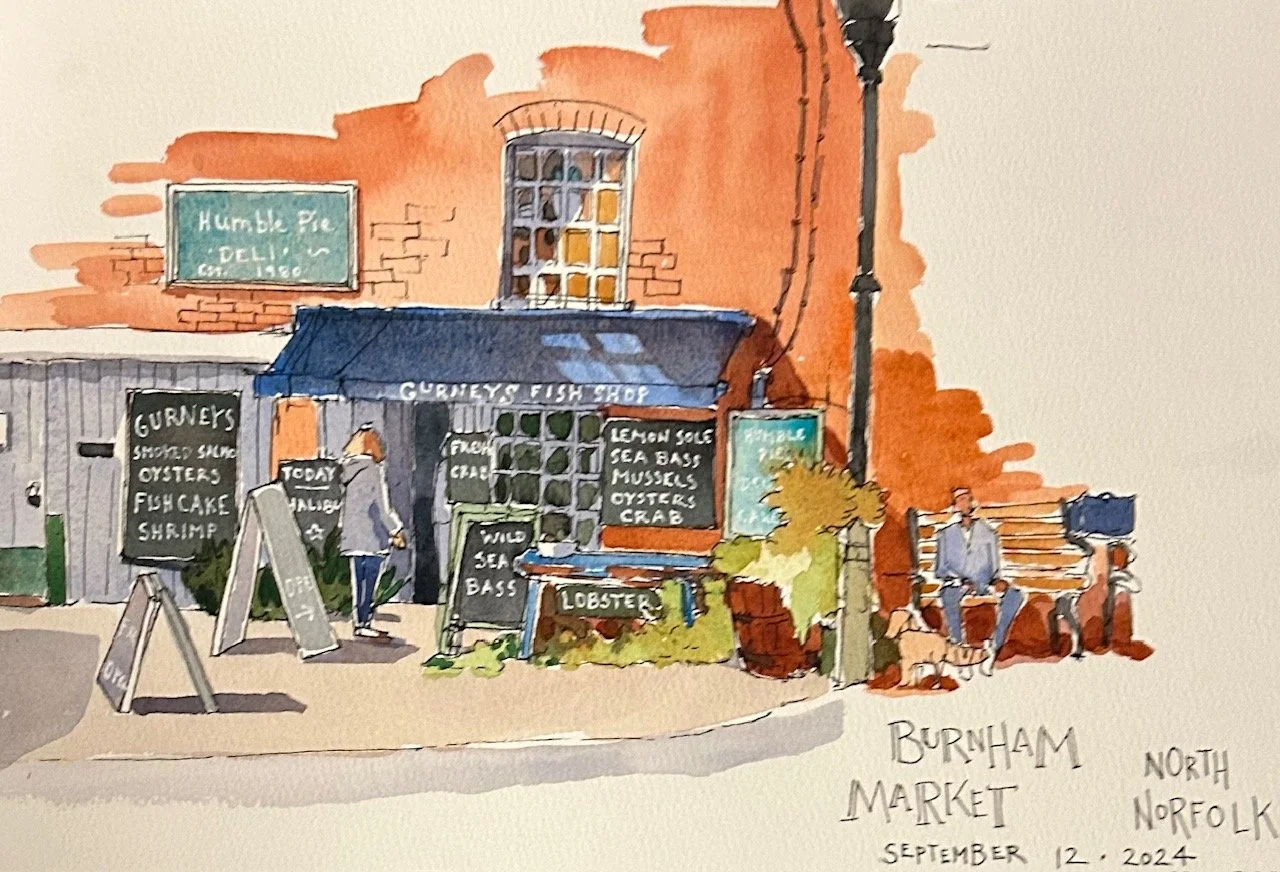 Humble Pie
'DELI' ~
EST. 1980
GURNEYS FISH SHOP
GURNEYS
SMOKED SALMO
OYSTERS
FISHCAKE
SHRIMP
TODAY
HALIBU
☆
OPE
→
FRESH
CRAB
LEMON SOLE
SEA BASS
MUSSELS
OYSTERS
CRAB
HUMBLE
PIE
WILD
SEA
BASS
LOBSTER
BURNHAM
MARKET
NORTH
NORFOLK
SEPTEMBER 12 · 2024